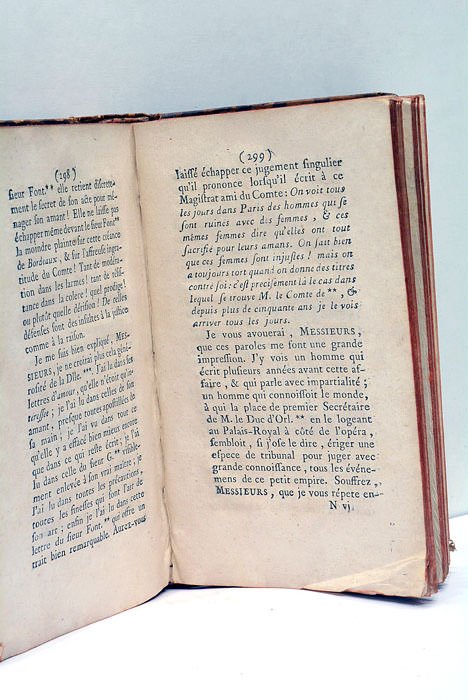 (298)
sieur Font.** elle retient discrete-
ment le secret de son acte pour mé-
nager son amant ! Elle ne laisse pas
échapper même devant le sieur Font**
la moindre plainte sur cette créance
de Bordeaux, & sur l'affreuse ingra-
titude du Comte ! Tant de modéra-
tion dans les larmes ! tant de résis-
tance dans la colere ! quel prodige !
ou plutôt quelle dérision ! De telles
défenses sont des insultes à la justice
comme à la raison.
Je me suis bien expliqué, MES-
SIEURS, je ne croirai plus cela géné-
rosité de la Dlle. ***. J'ai lu dans ses
lettres d'amour, qu'elle n'étoit qu'in-
téressée ; je l'ai lu dans celles de son
amant, presque toutes apostillées de
sa main ; je l'ai vu dans tout ce
qu'elle y a effacé bien mieux encore
que dans ce qui reste écrit ; je l'ai
lu dans celle du sieur G.** vérita-
ment enlevée à son vrai maître ; je
l'ai lu dans toutes les précautions,
toutes les finesses qui font l'art de
son art ; enfin je l'ai lu dans cette
lettre du sieur Font.** qui offre un
trait bien remarquable. Aurez-vous
(299)
laissé échapper ce jugement singulier
qu'il prononce lorsqu'il écrit à ce
Magistrat ami du Comte : On voit tous
les jours dans Paris des hommes qui se
sont ruinés avec des femmes, & ces
mêmes femmes dire qu'elles ont tout
sacrifié pour leurs amans. On sait bien
que ces femmes sont injustes ! mais on
a toujours tort quand on donne des titres
contre soi : c'est précisément là le cas dans
lequel se trouve M. le Comte de **, &
depuis plus de cinquante ans je le vois
arriver tous les jours.
Je vous avouerai, MESSIEURS,
que ces paroles me font une grande
impression. J'y vois un homme qui
écrit plusieurs années avant cette af-
faire, & qui parle avec impartialité ;
un homme qui connoissoit le monde,
à qui la place de premier Secrétaire
de M. le Duc d'Orl. ** en le logeant
au Palais-Royal à côté de l'opéra,
sembloit, si j'ose le dire, ériger une
espece de tribunal pour juger avec
grande connoissance, tous les événe-
mens de ce petit empire. Souffrez,
MESSIEURS, que je vous répete en-
N vj